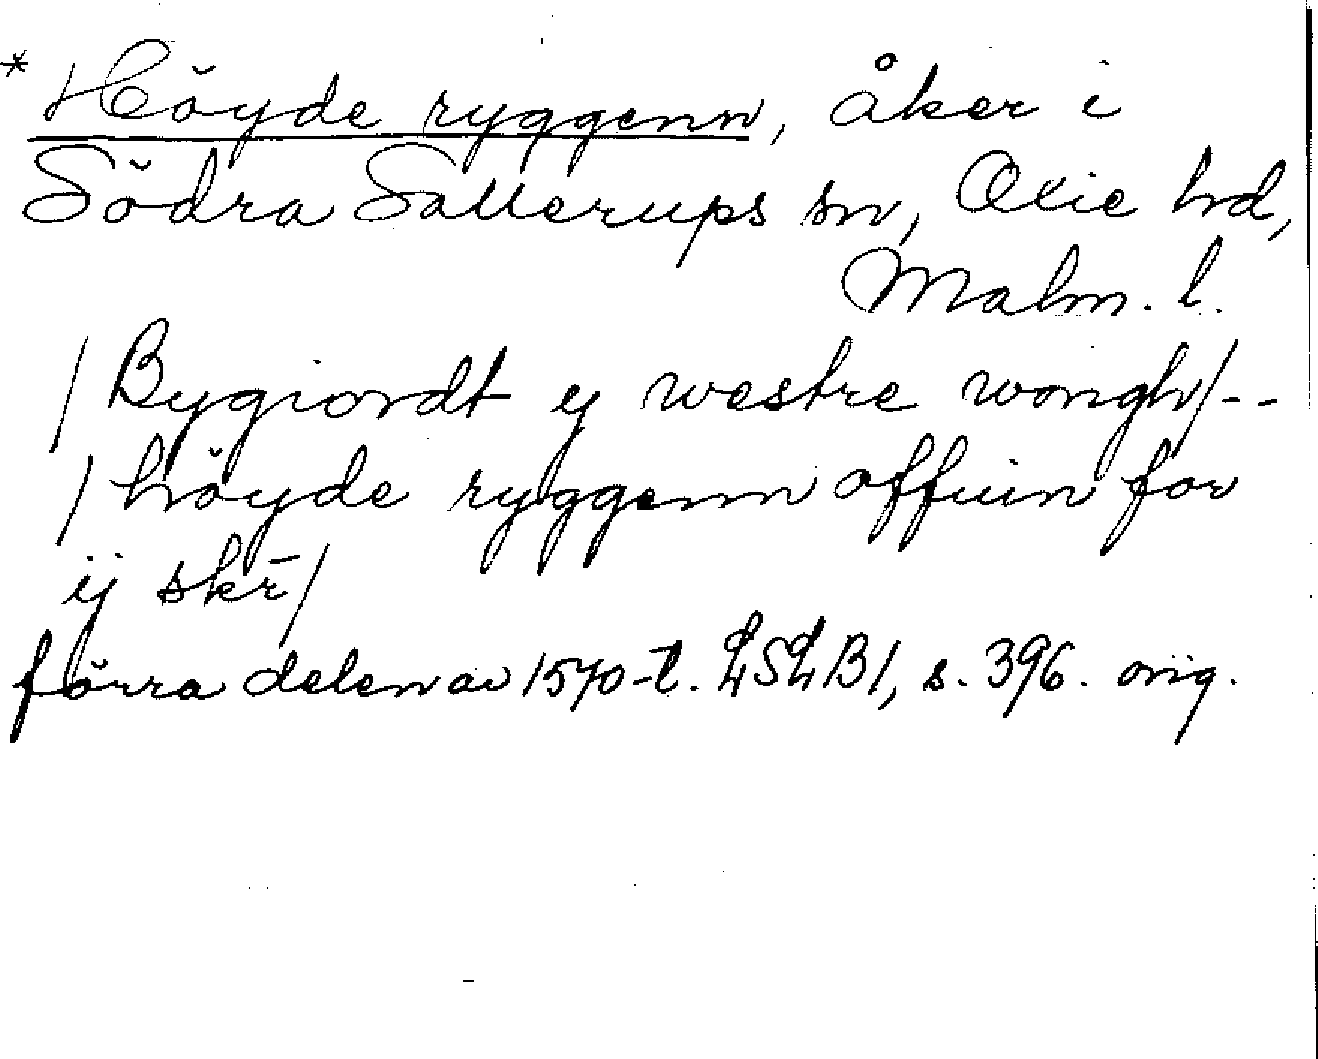 * Höyde ryggenn, åker i
Södra Sallerups sn, Oxie hd,
Malm. l.
/Bygiordt ij westre wongh/--
/höyde ryggenn offuin for
ij skr̄/
förra delen av 1570-t. LSLB1, s. 396. orig.